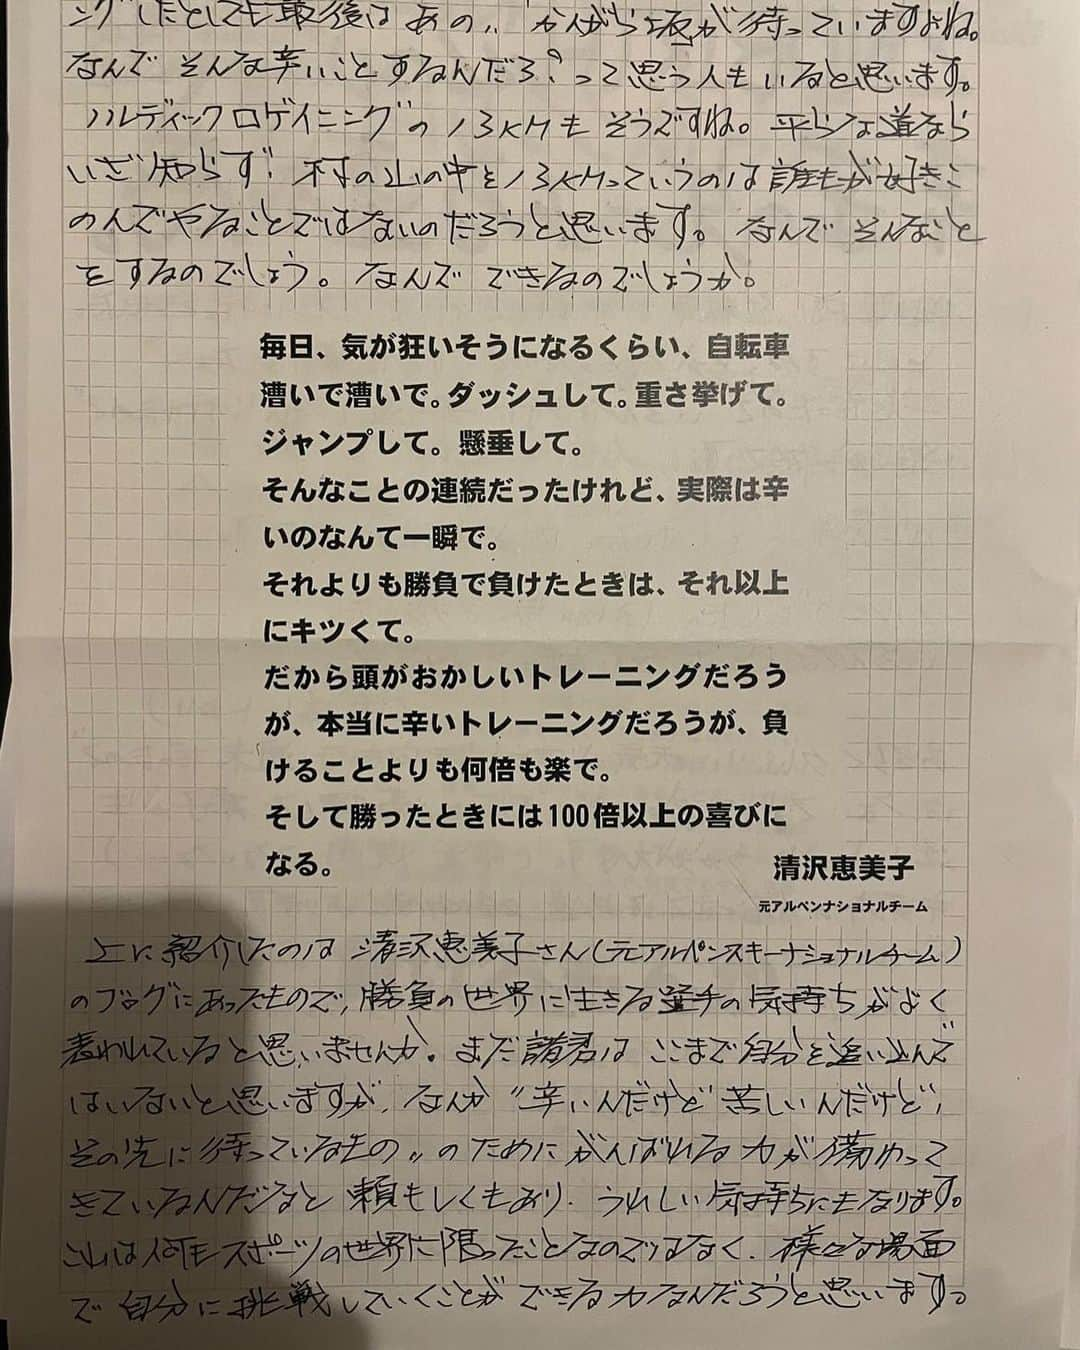 ング"したとしても最後はあの〃かんがら坂が待っていますよね。
なんで そんな辛いことするんだろ？って思う人もいると思います。
ノルディックロゲイニングの13KMもそうですね。平らな道なら
いざ知らず、村の山の中を13KMっていうのは誰もが好きこ
のんでやることではないのだろうと思います。なんで そんなこと
をするのでしょう。なんで できるのでしょうか。
毎日、気が狂いそうになるくらい、自転車
漕いで漕いで。ダッシュして。重さ挙げて。
ジャンプして。懸垂して。
そんなことの連続だったけれど、実際は辛
いのなんて一瞬で。
それよりも勝負で負けたときは、それ以上
にキツくて。
だから頭がおかしいトレーニングだろう
が、本当に辛いトレーニングだろうが、負
けることよりも何倍も楽で。
そして勝ったときには100倍以上の喜びに
なる。
清沢恵美子
元アルペンナショナルチーム
上に紹介したのは 清沢恵美子さん(元アルペンスキーナショナルチーム)
のブログにあったもので、勝負の世界に生きる選手の気持ちがよく
表われていると思いませんか。まだ諸君は ここまで自分を追い込んで
はいないと思いますが、なんか〃辛いんだけど 苦しいんだけど、
その先に待っているもの〃のために がんばれる力が備わって
きているんだなと 頼もしくもあり、うれしい気持ちにもなります。
これは何もスポーツの世界に限ったことなのではなく、様々な場面
で自分に挑戦していくことができる力なんだろうと思います。